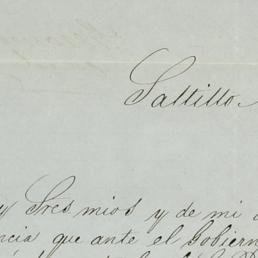 Saltillo.
y Sres mios y de mi
ncia que ante el Gobiern